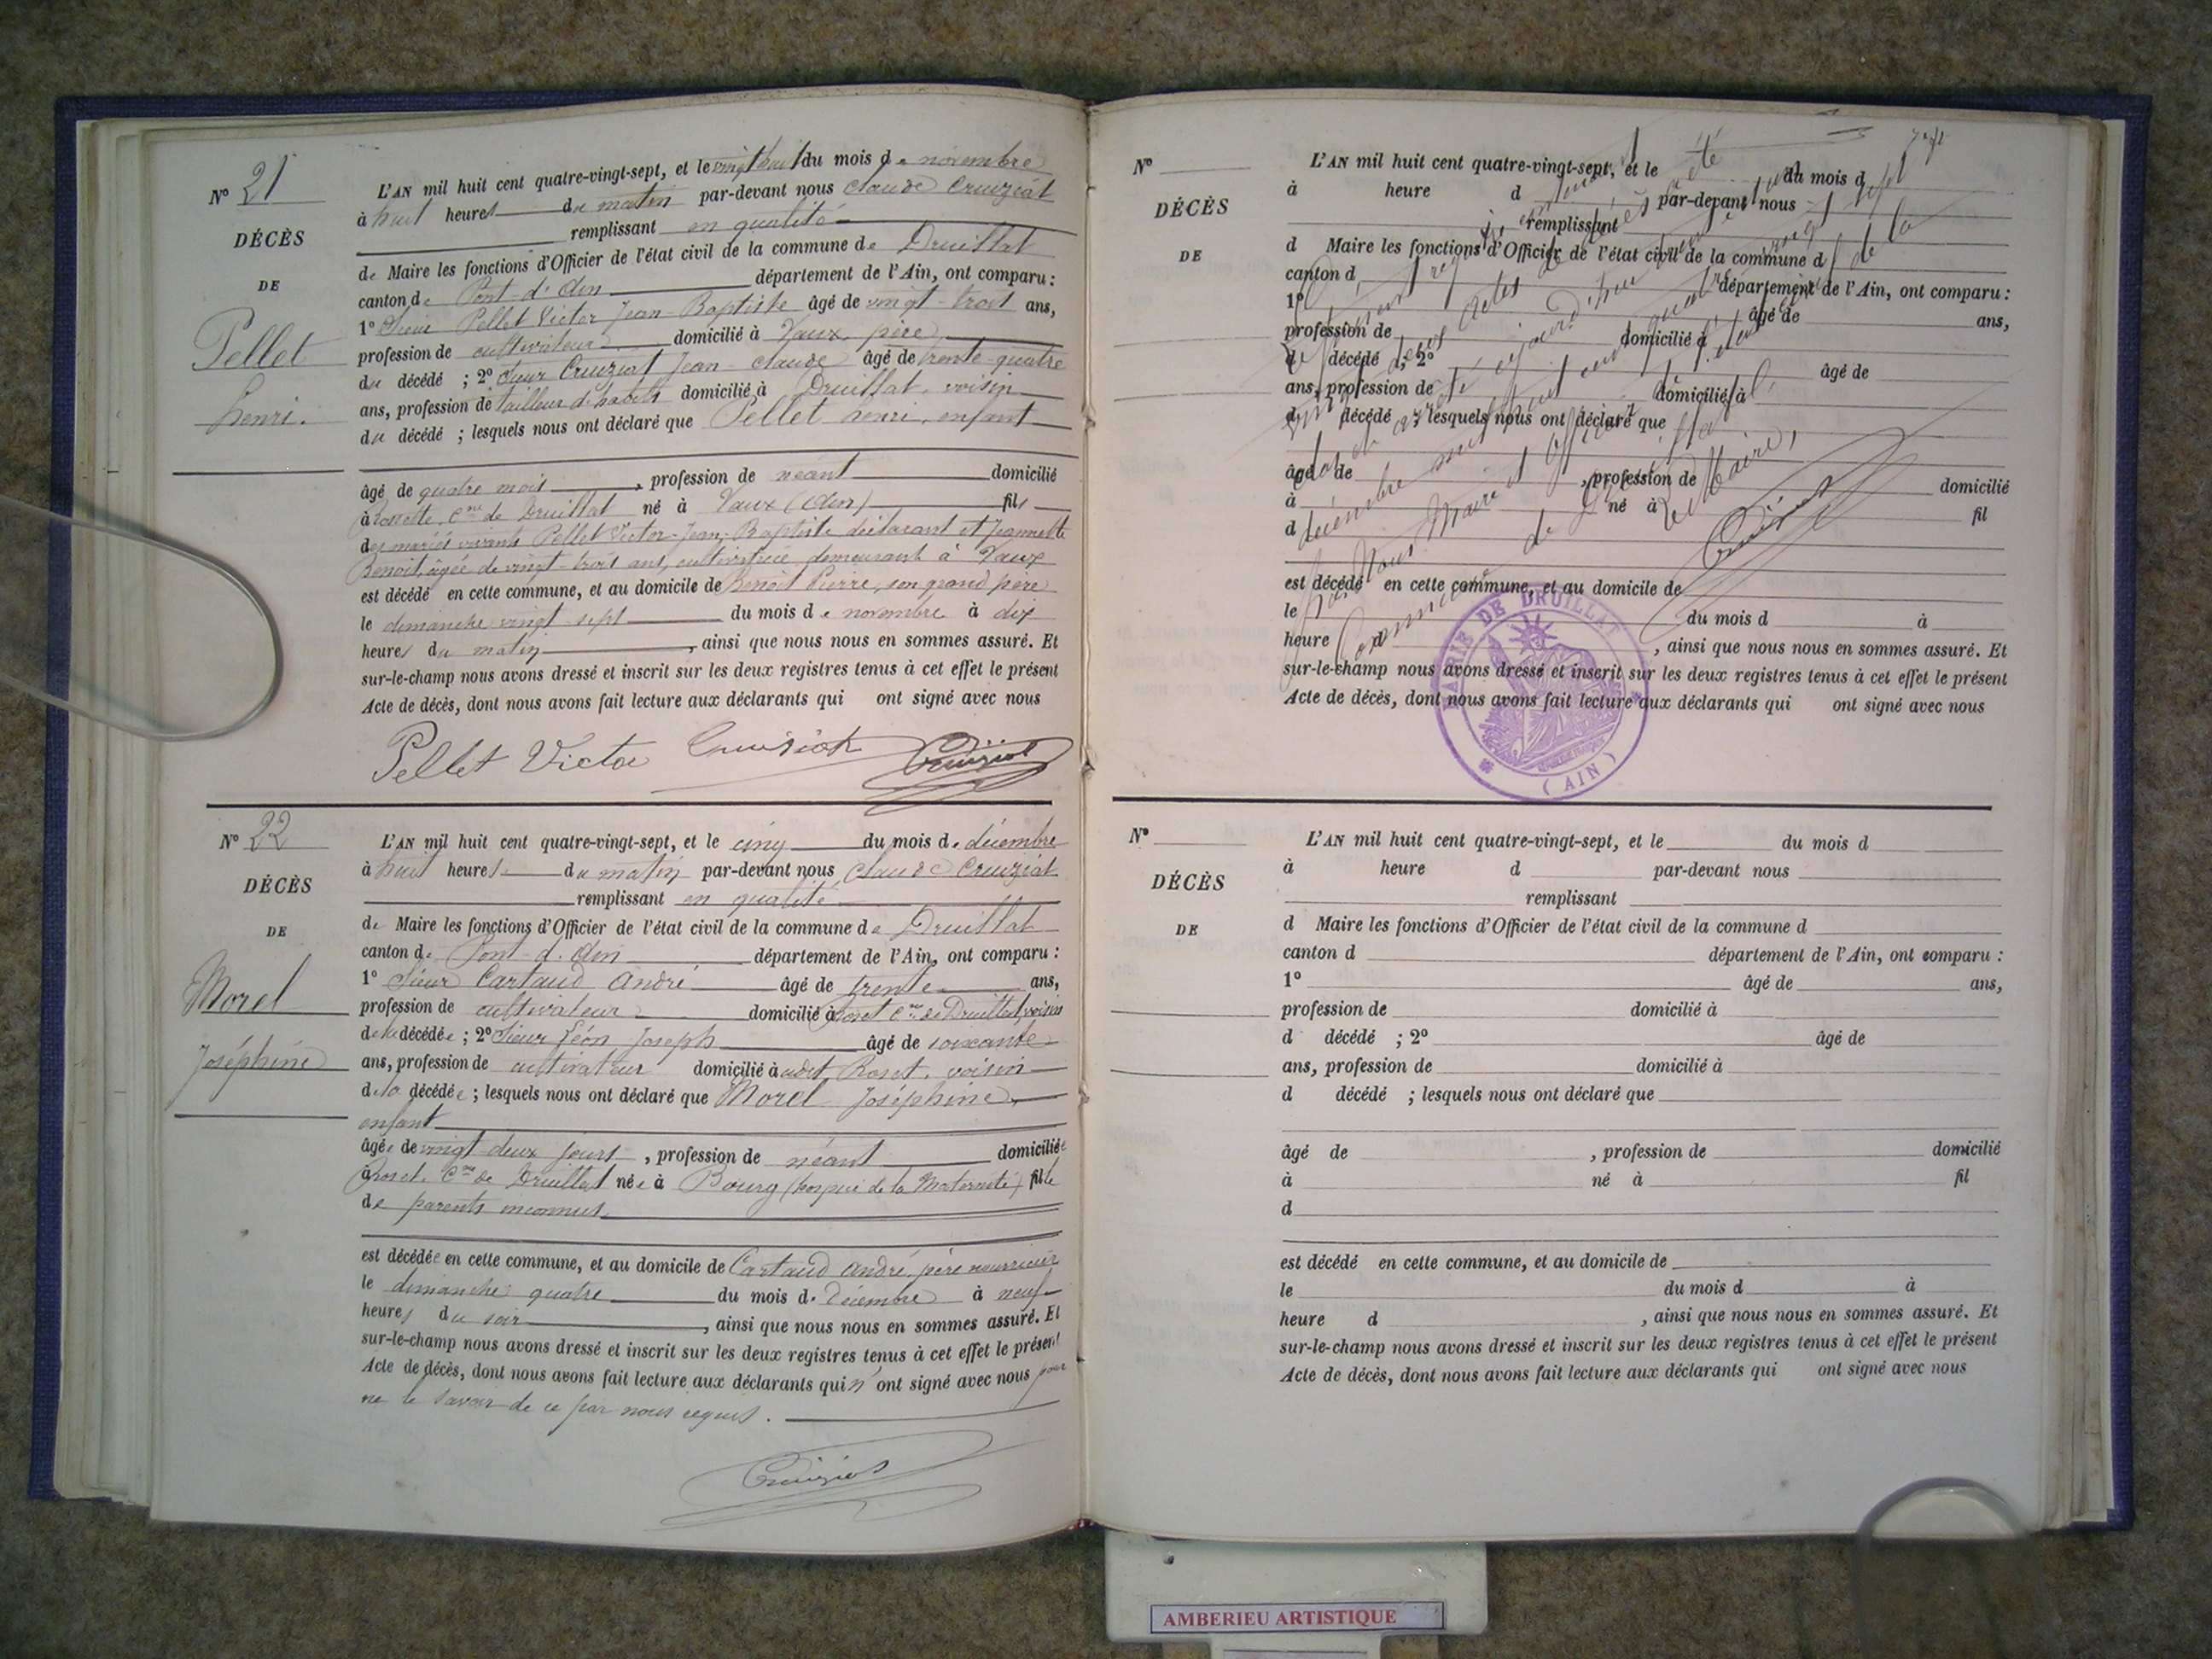 N° 21
DÉCÈS
DE
Pellet
henri.
L'AN mil huit cent quatre-vingt-sept, et le vingt huit du mois de novembre
à huit heures du matin par-devant nous Claude Cruiziat
remplissant en qualité
de Maire les fonctions d'Officier de l'état civil de la commune de Druillat
canton de Pont-d'Ain département de l'Ain, ont comparu :
1° Sieur Pellet Victor Jean-Baptiste âgé de vingt-trois ans,
profession de cultivateur domicilié à Vaux, père
du décédé ; 2° Sieur Cruiziat Jean-Claude âgé de trente-quatre
ans, profession de tailleur d'habits domicilié à Druillat, voisin
du décédé ; lesquels nous ont déclaré que Pellet henri, enfant
âgé de quatre mois, profession de néant domicilié
à Rossette Cne de Druillat né à Vaux (Ain) fils
des mariés vivants Pellet Victor-Jean-Baptiste déclarant et Jeannette
Benoit, âgée de vingt-trois ans, cultivatrice demeurant à Vaux
est décédé en cette commune, et au domicile de Benoit Pierre, son grand père
le dimanche vingt-sept du mois de novembre à dix
heures du matin, ainsi que nous nous en sommes assuré. Et
sur-le-champ nous avons dressé et inscrit sur les deux registres tenus à cet effet le présent
Acte de décès, dont nous avons fait lecture aux déclarants qui ont signé avec nous
Pellet Victor Cruiziat Cruiziat
N° 22
DÉCÈS
DE
Morel
Joséphine
L'AN mil huit cent quatre-vingt-sept, et le cinq du mois de décembre
à huit heures du matin par-devant nous Claude Cruiziat
remplissant en qualité
de Maire les fonctions d'Officier de l'état civil de la commune de Druillat
canton de Pont-d'Ain département de l'Ain, ont comparu :
1° Sieur Cartaud André âgé de trente ans,
profession de cultivateur domicilié à Roset Cne de Druillat, voisin
de la décédée ; 2° Sieur Léon Joseph âgé de soixante
ans, profession de cultivateur domicilié à udit Roset, voisin
de la décédée ; lesquels nous ont déclaré que Morel Joséphine,
enfant
âgée de vingt deux jours, profession de néant domiciliée
à Roset, Cne de Druillat née à Bourg (hospice de la Maternité) fille
de parents inconnus,
est décédée en cette commune, et au domicile de Cartaud André, père nourricier
le dimanche quatre du mois de Décembre à neuf
heures du soir, ainsi que nous nous en sommes assuré. Et
sur-le-champ nous avons dressé et inscrit sur les deux registres tenus à cet effet le présent
Acte de décès, dont nous avons fait lecture aux déclarants qui n'ont signé avec nous pour
ne le savoir de ce par nous requis.
Cruiziat
N°
DÉCÈS
DE
L'AN mil huit cent quatre-vingt-sept, et le du mois d
à heure d par-devant nous
remplissant
d Maire les fonctions d'Officier de l'état civil de la commune d
canton d département de l'Ain, ont comparu :
1° âgé de ans,
profession de domicilié à
d décédé ; 2° âgé de
ans, profession de domicilié à
d décédé ; lesquels nous ont déclaré que
âgé de , profession de domicilié
à né à fil
d
est décédé en cette commune, et au domicile de
le du mois d à
heure d , ainsi que nous nous en sommes assuré. Et
sur-le-champ nous avons dressé et inscrit sur les deux registres tenus à cet effet le présent
Acte de décès, dont nous avons fait lecture aux déclarants qui ont signé avec nous
décembre mil huit cent quatre
par Nous Maire et Officier
Commune de Druillat
Le Maire,
Cruiziat
MAIRIE DE DRUILLAT
(AIN)
N°
DÉCÈS
DE
L'AN mil huit cent quatre-vingt-sept, et le du mois d
à heure d par-devant nous
remplissant
d Maire les fonctions d'Officier de l'état civil de la commune d
canton d département de l'Ain, ont comparu :
1° âgé de ans,
profession de domicilié à
d décédé ; 2° âgé de
ans, profession de domicilié à
d décédé ; lesquels nous ont déclaré que
âgé de , profession de domicilié
à né à fil
d
est décédé en cette commune, et au domicile de
le du mois d à
heure d , ainsi que nous nous en sommes assuré. Et
sur-le-champ nous avons dressé et inscrit sur les deux registres tenus à cet effet le présent
Acte de décès, dont nous avons fait lecture aux déclarants qui ont signé avec nous
AMBERIEU ARTISTIQUE